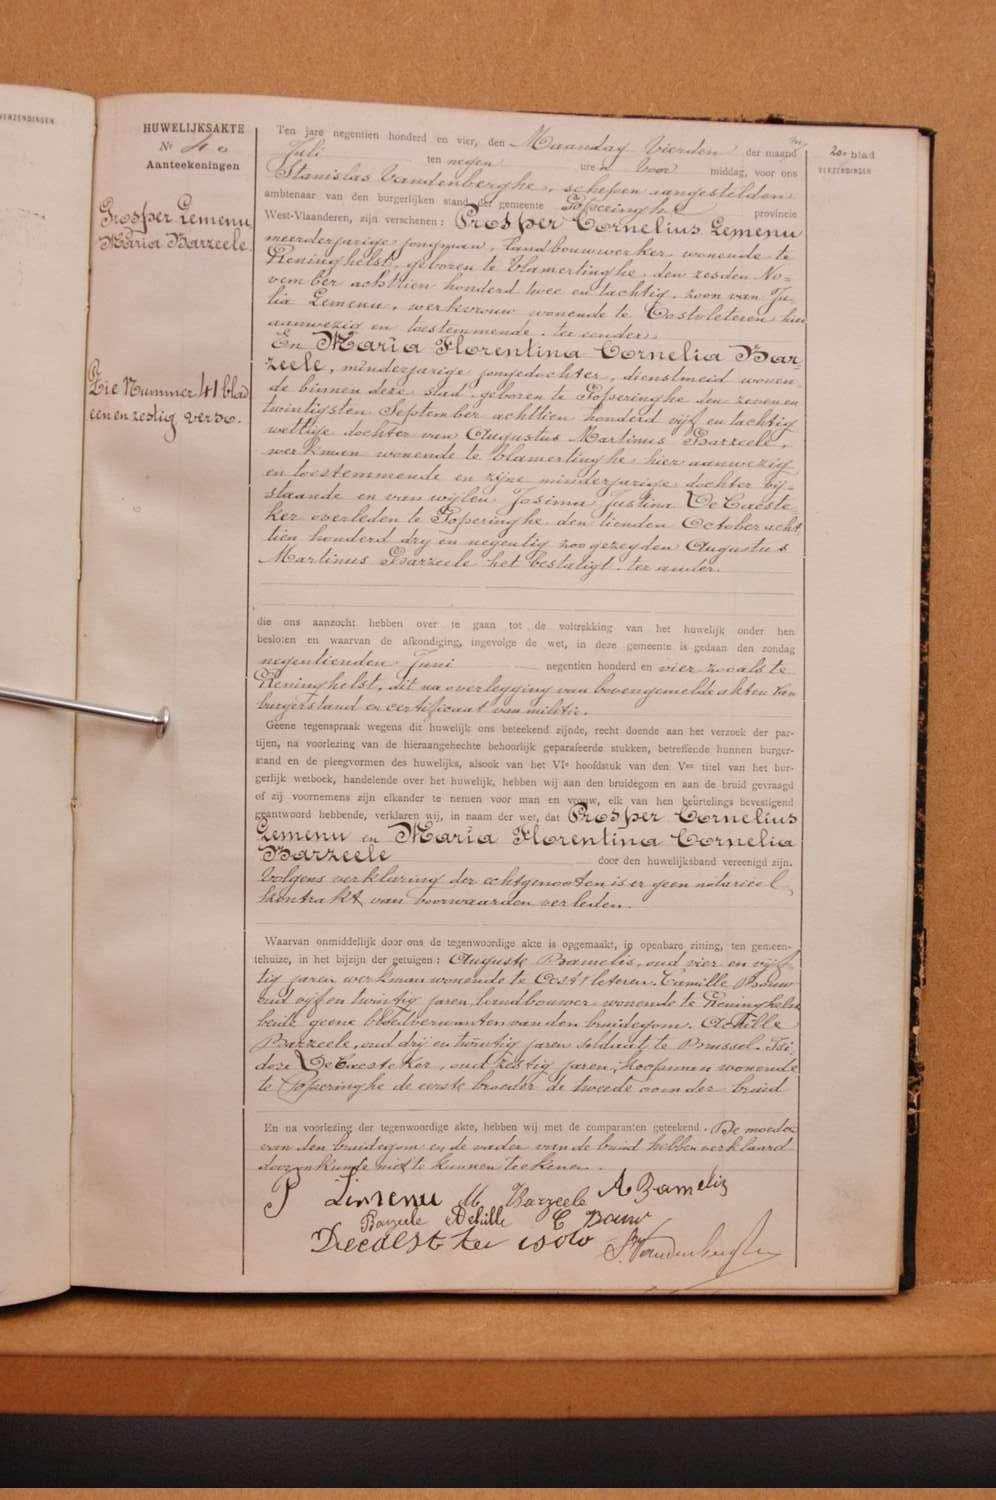 VERZENDINGEN
HUWELIJKSAKTE
Nr 40
Aanteekeningen
Prosper Lemenu
Maria Barzeele.
Zie Nummer 41 blad
een en zestig verso.
20e blad
VERZENDINGEN
Ten jare negentien honderd en vier, den Maandag Vierden der maand
Juli ten negen ure n Voor middag, voor ons
Stanislas Vandenberghe, schepen aangestelden
ambtenaar van den burgerlijken stand der gemeente Poperinghe provincie
West-Vlaanderen, zijn verschenen: Prosper Cornelius Lemenu
meerderjarige jongman, landbouwwerker wonende te
Reninghelst, geboren te Vlamertinghe, den zesden No-
vember achttien honderd twee en tachtig, zoon van Ju-
lia Lemenu, werkvrouw wonende te Oostvleteren hier
aanwezig en toestemmende. ter eender.
En Maria Florentina Cornelia Bar-
zeele, minderjarige jongedochter, dienstmeid wonen-
de binnen deze stad, geboren te Poperinghe den zeven en
twintigsten September achttien honderd vijf en tachtig
wettige dochter van Augustus Martinus Barzeele,
werkman wonende te Vlamertinghe hier aanwezig
en toestemmende en zijne minderjarige dochter bij-
staande en van wijlen Josima Justina DeCaeste-
ker overleden te Poperinghe den tienden October acht
tien honderd dry en negentig zoo gezeyden Augustus
Martinus Barzeele het bestatigt. ter ander.
die ons aanzocht hebben over te gaan tot de voltrekking van het huwelijk onder hen
besloten en waarvan de afkondiging, ingevolge de wet, in deze gemeente is gedaan den zondag
negentienden Juni negentien honderd en vier zooals te
Reninghelst, dit na overlegging van bovengemelde akten van
burgerstand en certificaat van militie.
Geene tegenspraak wegens dit huwelijk ons beteekend zijnde, recht doende aan het verzoek der par-
tijen, na voorlezing van de hieraangehechte behoorlijk geparafeerde stukken, betreffende hunnen burger-
stand en de pleegvormen des huwelijks, alsook van het VIe hoofdstuk van den Ven titel van het bur-
gerlijk wetboek, handelende over het huwelijk, hebben wij aan den bruidegom en aan de bruid gevraagd
of zij voornemens zijn elkander te nemen voor man en vrouw, elk van hen beurtelings bevestigend
geantwoord hebbende, verklaren wij, in naam der wet, dat Prosper Cornelius
Lemenu en Maria Florentina Cornelia
Barzeele door den huwelijksband vereenigd zijn.
Volgens verklaring der echtgenooten is er geen notarieel
kontrakt van voorwaarden verleden.
Waarvan onmiddellijk door ons de tegenwoordige akte is opgemaakt, in openbare zitting, ten gemeen-
tehuize, in het bijzijn der getuigen: Auguste Bamelis, oud vier en vijf-
tig jaren werkman wonende te Oostvleteren. Camille Bouw
oud vijf en twintig jaren, landbouwer wonende te Reninghelst
beide geene bloedverwanten van den bruidegom. Achille
Barzeele, oud drij en twintig jaren soldaat te Brussel. Isi-
door DeCaesteker, oud zestig jaren, koopman wonende
te Poperinghe de eerste broeder de tweede oom der bruid
En na voorlezing der tegenwoordige akte, hebben wij met de comparanten geteekend. De moeder
van den bruidegom en de vader van de bruid hebben verklaard
door onkunde niet te kunnen teekenen.
P Limenu M Barzeele A Bamelis
Barzeele Achille C Bouw
Decaestker isodo S. Vandenberghe